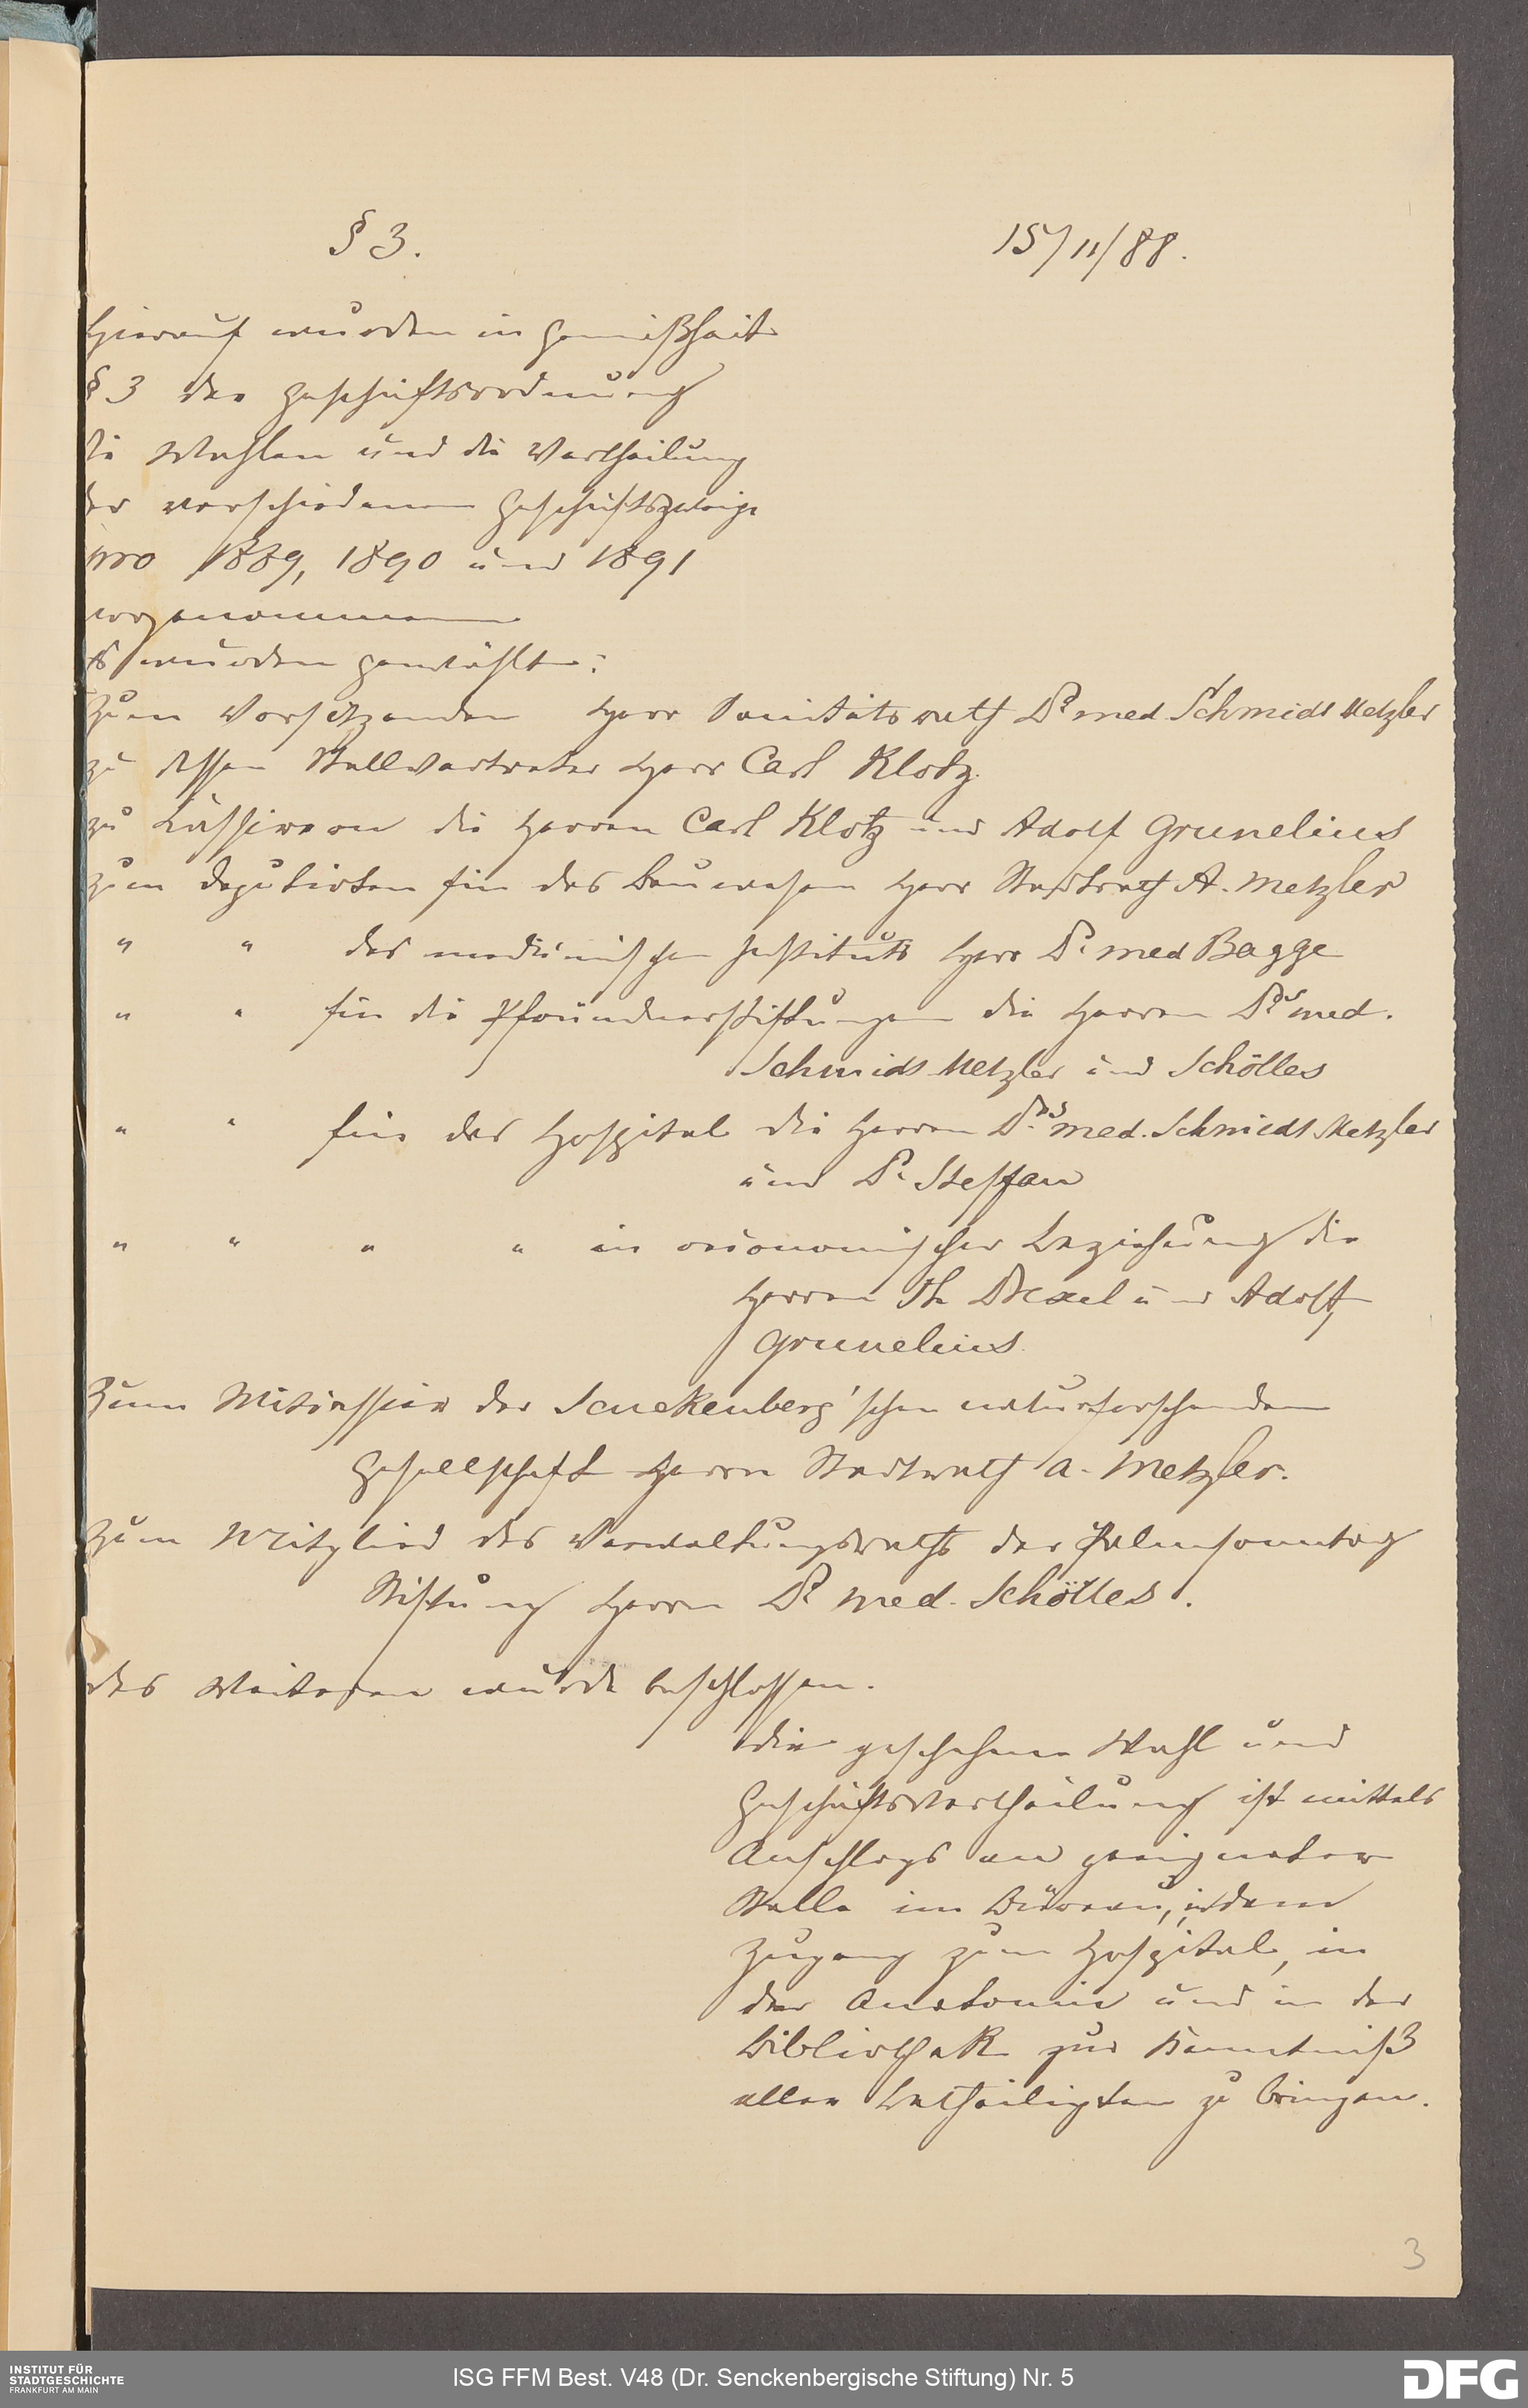 § 3.
15/11/88.
Hierauf wurden in Gemäßheit
§ 3 der Geschäftsordnung
die Wahlen und die Vertheilung
der verschiedenen Geschäftszweige
pro 1889, 1890 und 1891
vorgenommen
Es wurden gewählt:
Zum Vorsitzenden Herr Sanitätsrath Dr med. Schmidt Metzler
zu dessen Stellvertreter Herr Carl Klotz.
zu Cassirern die Herren Carl Klotz und Adolf Grunelius
zum Deputirten für das Bauwesen Herr Stadtrath A. Metzler
" " des medicinischen Instituts Herr Dr med Bagge
" " für die Pfründnerstiftungen die Herren Drs med.
Schmidt Metzler und Schölles
" " für das Hospital die Herren Drs med. Schmidt Metzler
und Dr Steffan
" " " " in oeconomischer Beziehung die
Herren Th Drexel und Adolf
Grunelius.
Zum Mitcassier der Senckenberg'schen naturforschenden
Gesellschaft Herrn Stadtrath A. Metzler.
Zum Mitglied des Verwaltungsraths der Palmsonntag
Stiftung Herrn Dr med. Schölles.
Des Weiteren wurde beschlossen.
Die geschehene Wahl und
Geschäftsvertheilung ist mittels
Anschlags an geeigneter
Stelle im Büreau, in dem
Zugang zum Hospital, in
der Anatomie und in der
Bibliothek zur Kenntniß
aller Betheiligten zu bringen.
3
INSTITUT FÜR
STADTGESCHICHTE
FRANKFURT AM MAIN
ISG FFM Best. V48 (Dr. Senckenbergische Stiftung) Nr. 5
DFG